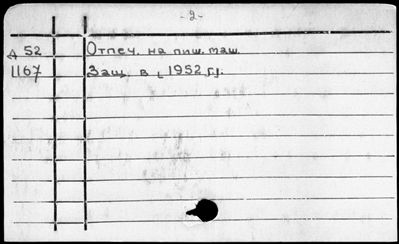 -2-
Д 52 Отпеч. на пиш. маш.
1167 Защ. в [1952 г.].